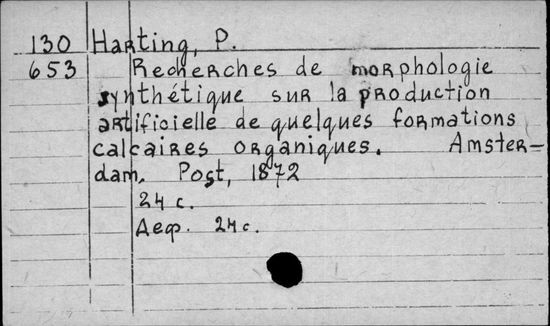 130 Harting, P.
653 Recherches de morphologie
synthétique sur la production
artificielle de quelques formations
calcaires organiques. Amster-
dam, Post, 1872
24 с.
Деф. 24 с.